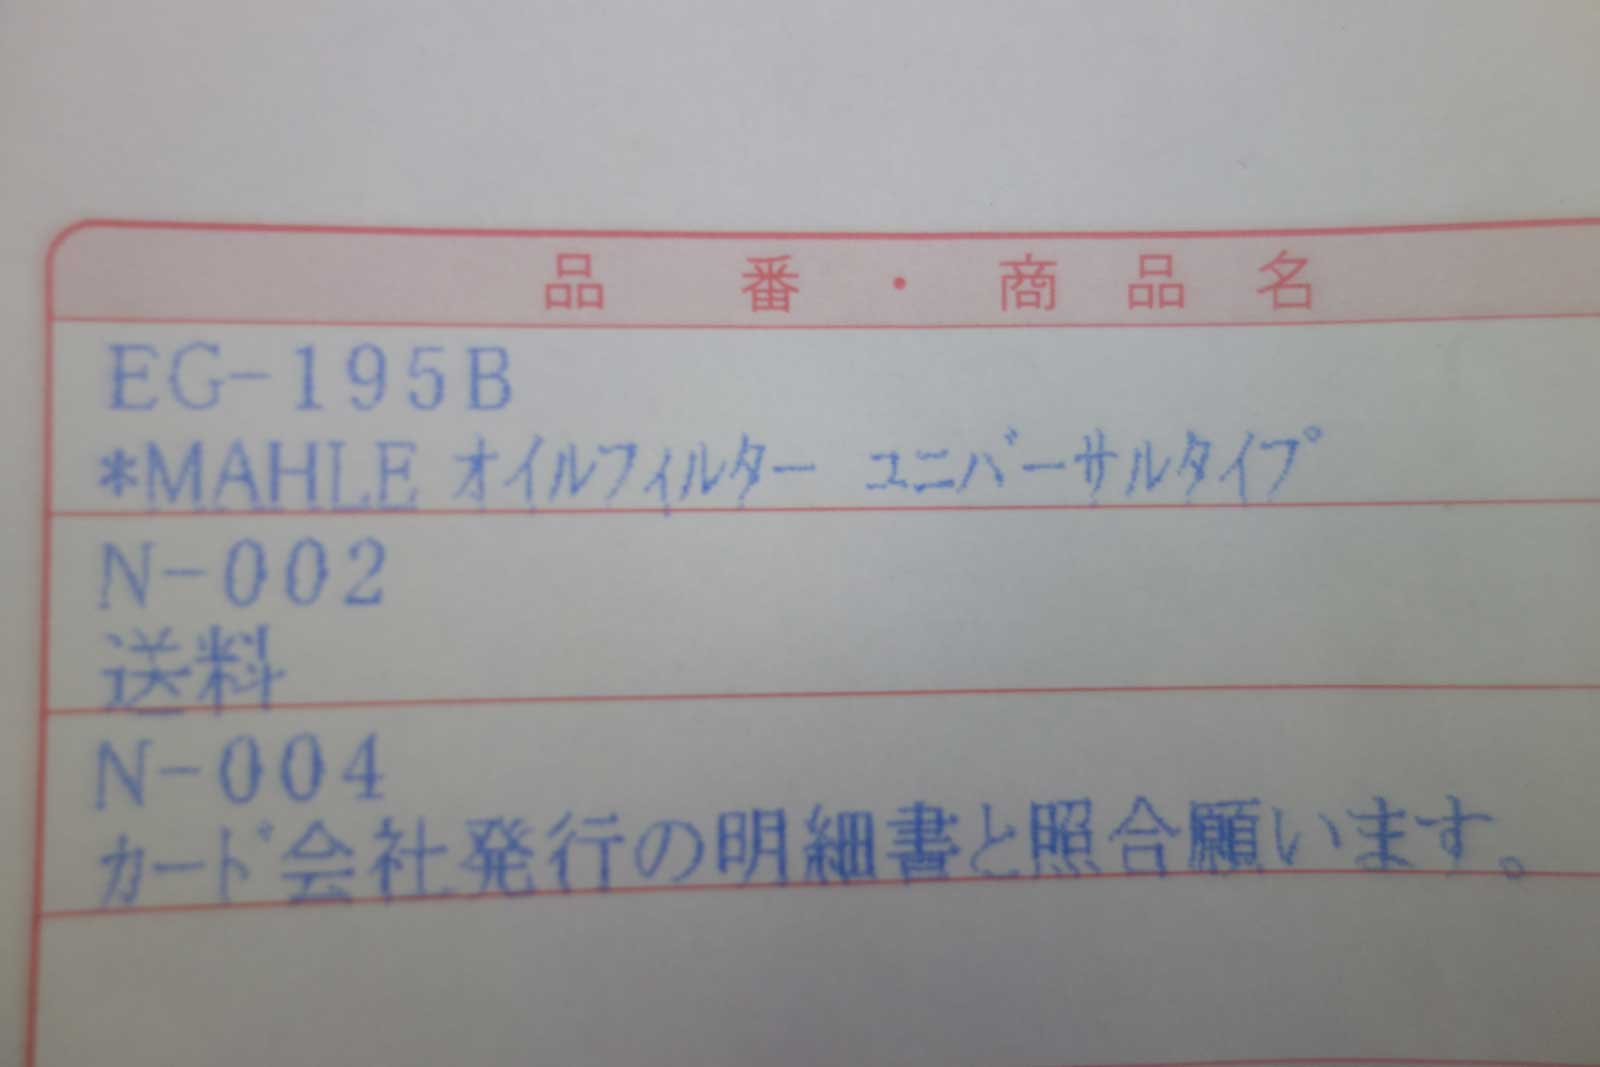 品番・商品名
EG-195B
*MAHLE オイルフィルター ユニバーサルタイプ
N-002
送料
N-004
カード会社発行の明細書と照合願います。